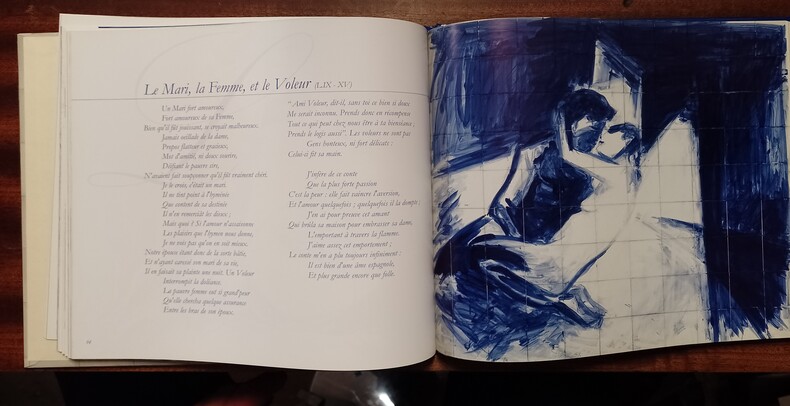 Le Mari, la Femme, et le Voleur (LIX - XV)
Un Mari fort amoureux,
Fort amoureux de sa Femme,
Bien qu'il fût jouissant, se croyait malheureux.
Jamais oeillade de la dame,
Propos flatteur et gracieux,
Mot d'amitié, ni doux sourire,
Déifiant le pauvre sire,
N'avaient fait soupçonner qu'il fût vraiment chéri.
Je le crois, c'était un mari.
Il ne tint point à l'hyménée
Que content de sa destinée
Il n'en remerciât les dieux ;
Mais quoi ? Si l'amour n'assaisonne
Les plaisirs que l'hymen nous donne,
Je ne vois pas qu'on en soit mieux.
Notre épouse étant donc de la sorte bâtie,
Et n'ayant caressé son mari de sa vie,
Il en faisait sa plainte une nuit. Un Voleur
Interrompit la doléance.
La pauvre femme eut si grand'peur
Qu'elle chercha quelque assurance
Entre les bras de son époux.
"Ami Voleur, dit-il, sans toi ce bien si doux
Me serait inconnu. Prends donc en récompense
Tout ce qui peut chez nous être à ta bienséance ;
Prends le logis aussi". Les voleurs ne sont pas
Gens honteux, ni fort délicats :
Celui-ci fit sa main.
J'infère de ce conte
Que la plus forte passion
C'est la peur : elle fait vaincre l'aversion,
Et l'amour quelquefois ; quelquefois il la dompte ;
J'en ai pour preuve cet amant
Qui brûla sa maison pour embrasser sa dame,
L'emportant à travers la flamme.
J'aime assez cet emportement ;
Le conte m'en a plu toujours infiniment :
Il est bien d'une âme espagnole,
Et plus grande encore que folle